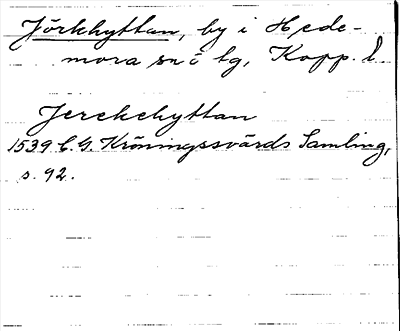 Jörkhyttan, by i Hede-
mora sn o tg, Kopp. l.
Jerckehyttan
1539 C. G. Kröningssvärds Samling,
s. 92.